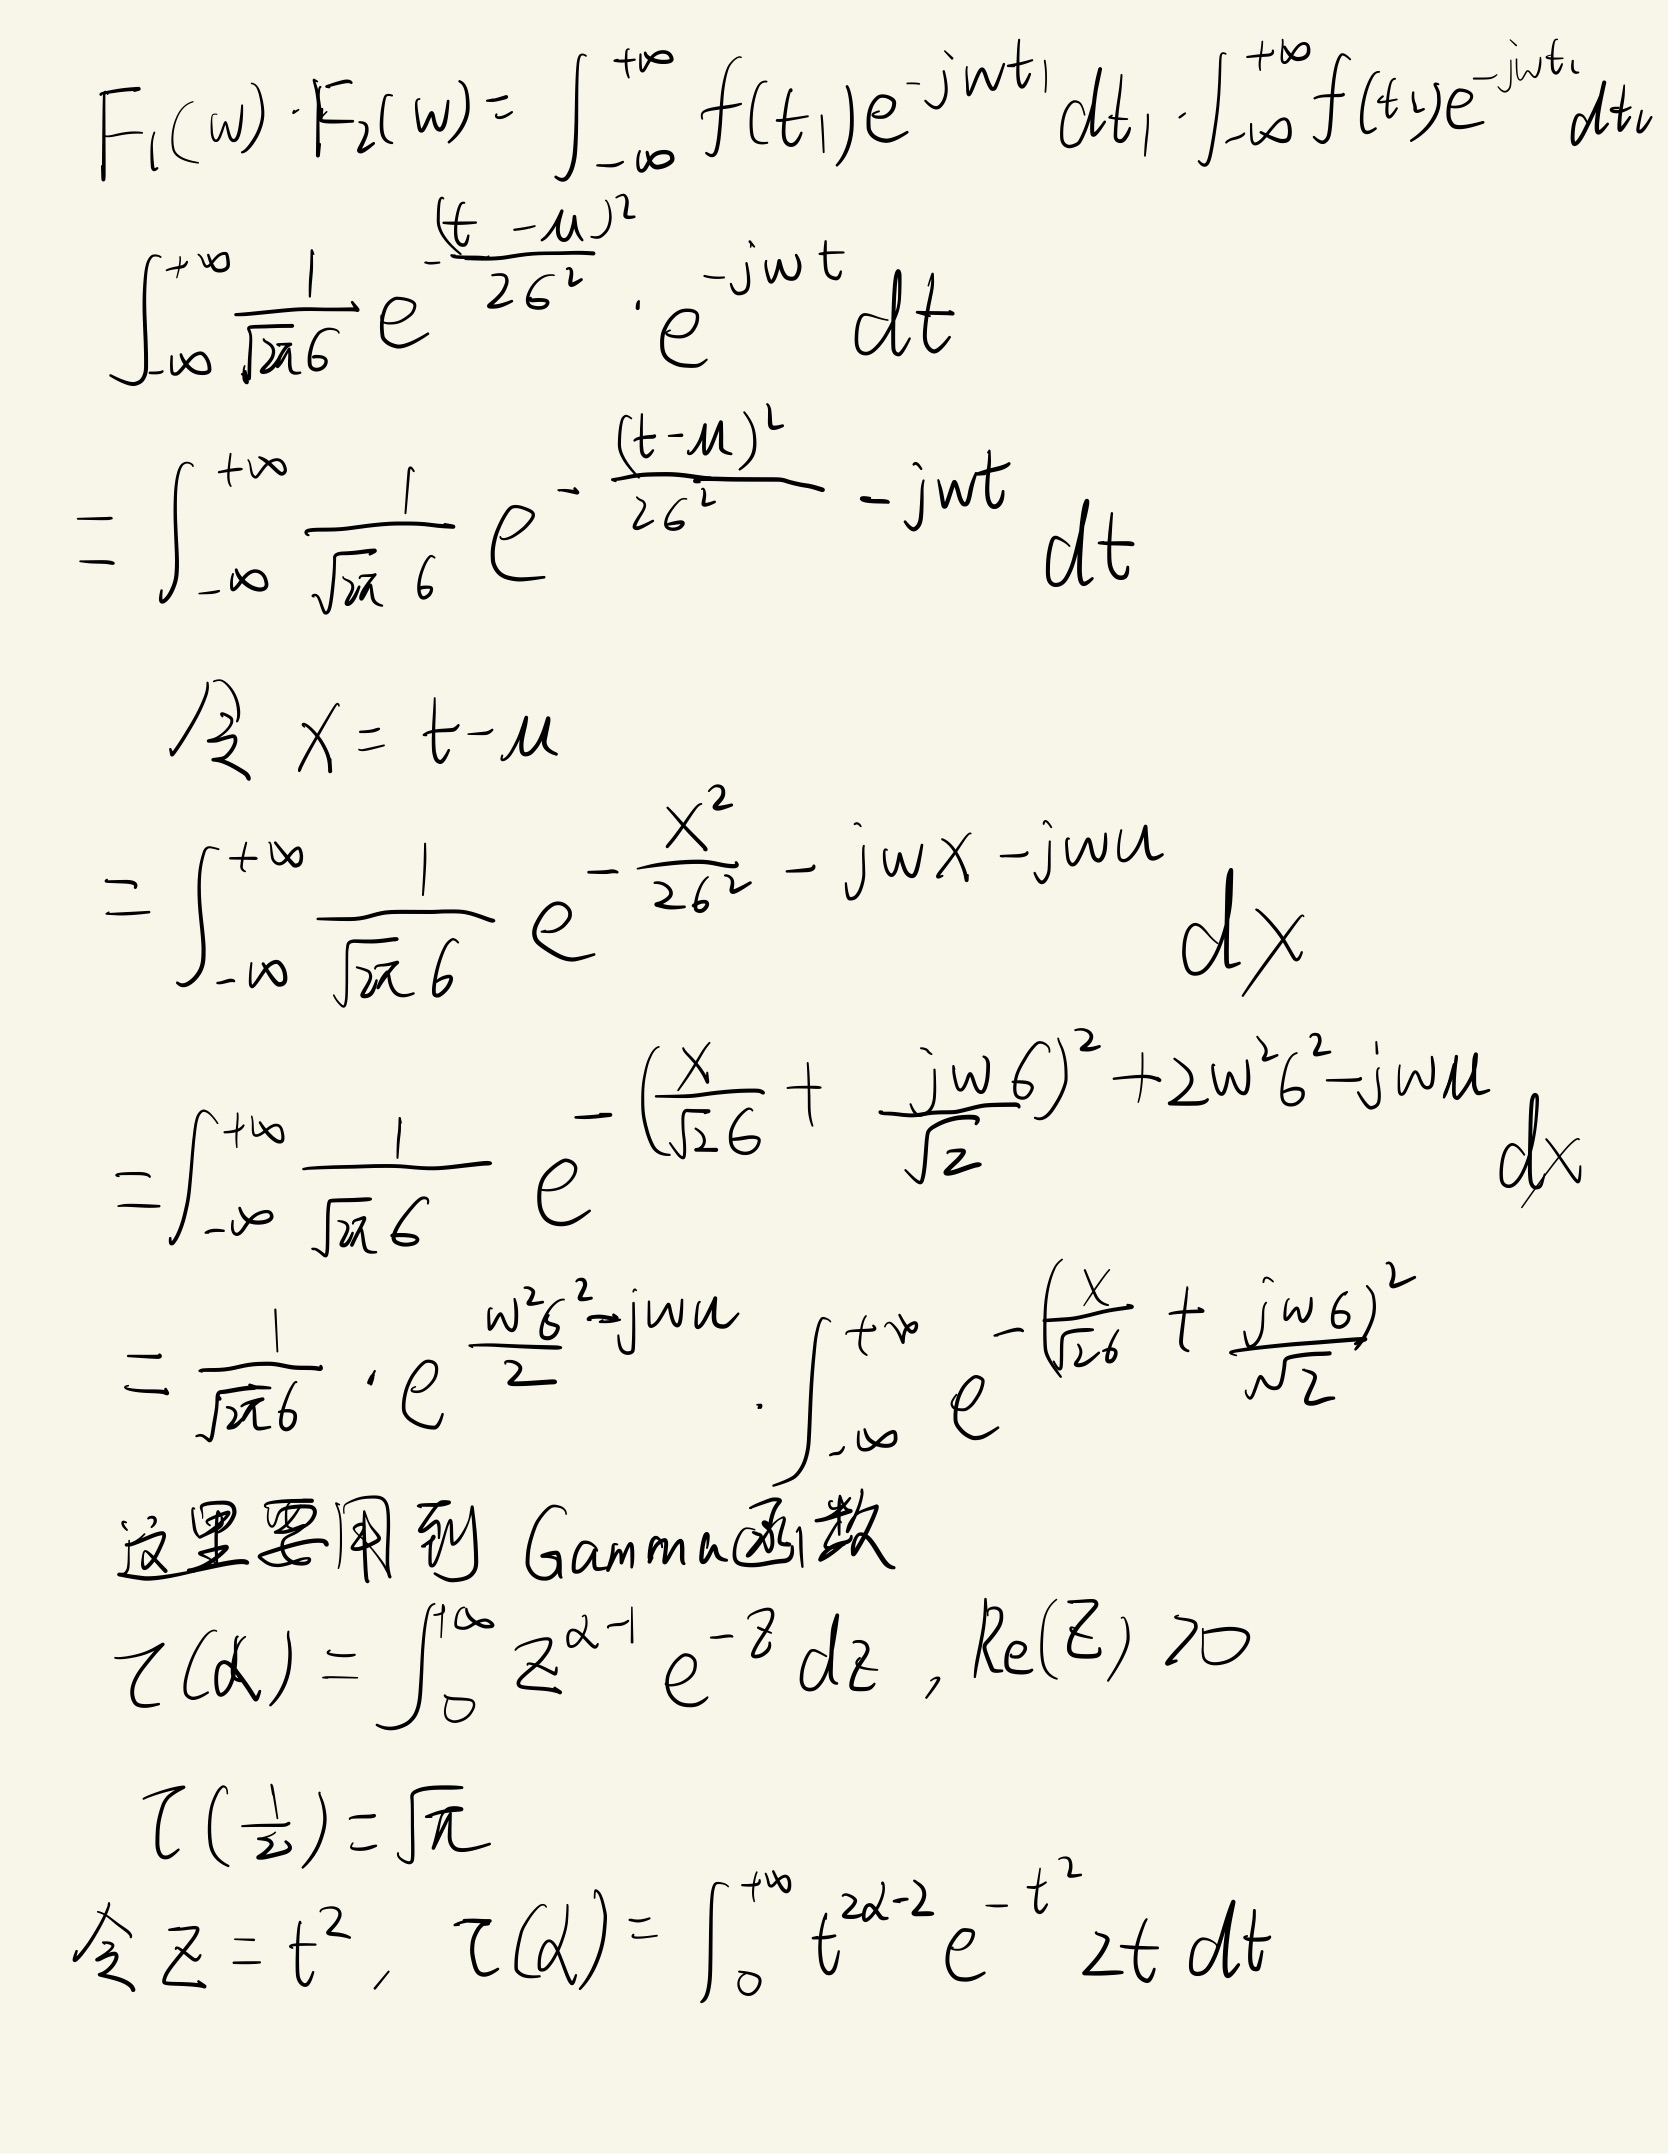 F₁(w)·F₂(w) = ∫_{-∞}^{+∞} f(t₁)e^{-jwt₁}dt₁ · ∫_{-∞}^{+∞} f(t₂)e^{-jwt₂}dt₂
∫_{-∞}^{+∞} \frac{1}{\sqrt{2π}σ} e^{-\frac{(t-μ)^2}{2σ^2}} · e^{-jwt} dt
= ∫_{-∞}^{+∞} \frac{1}{\sqrt{2π}σ} e^{-\frac{(t-μ)^2}{2σ^2} - jwt} dt
令 x = t-μ
= ∫_{-∞}^{+∞} \frac{1}{\sqrt{2π}σ} e^{-\frac{x^2}{2σ^2} - jwx - jwμ} dx
= ∫_{-∞}^{+∞} \frac{1}{\sqrt{2π}σ} e^{-(\frac{x}{\sqrt{2}σ} + \frac{jwσ}{\sqrt{2}})^2 + 2w^2σ^2 - jwμ} dx
= \frac{1}{\sqrt{2π}σ} · e^{\frac{w^2σ^2}{2} - jwμ} · ∫_{-∞}^{+∞} e^{-(\frac{x}{\sqrt{2}σ} + \frac{jwσ}{\sqrt{2}})^2}
这里要用到 Gamma函数
τ(α) = ∫_{0}^{+∞} z^{α-1} e^{-z} dz , Re(z) >0
τ(\frac{1}{2}) = \sqrt{π}
令 z = t², τ(α) = ∫_{0}^{+∞} t^{2α-2} e^{-t^2} 2t dt